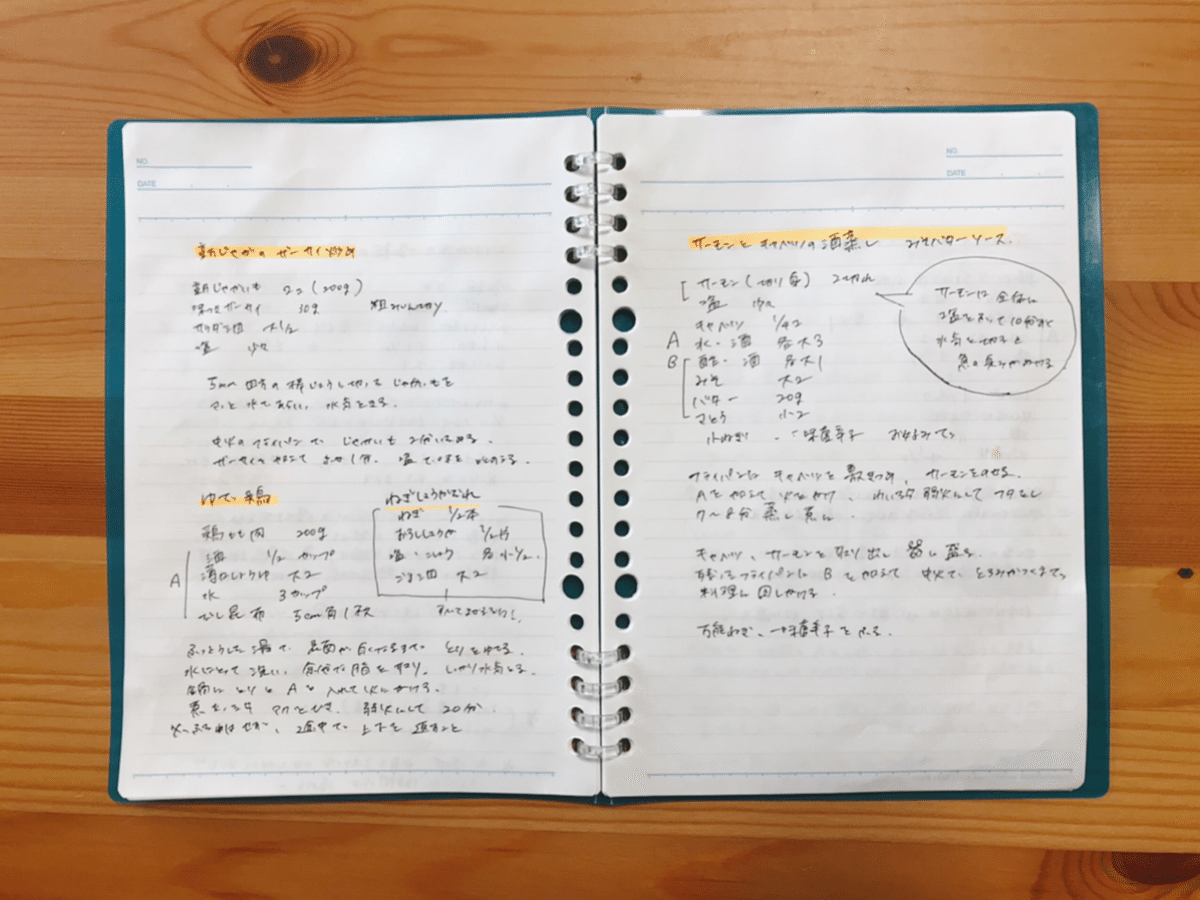 NO.
DATE
新じゃがのザーサイ炒め
新じゃがいも 2コ (200g)
味つきザーサイ 30g 粗みじん切り
サラダ油 大1/2
塩 少々
5mm四方の棒じょうに切って じゃがいもを
サッと水であらい、水気をとる。
中火のフライパンで じゃがいも 2分いためる。
ザーサイを加えて 1分。塩で味を
ゆで鶏
鶏もも肉 200g
A
酒 1/2カップ
薄口しょうゆ 大2
水 3カップ
だし昆布 5cm角1枚
ねぎしょうがだれ
ねぎ 1/2本
おろししょうが 1/2片
塩・こしょう 各小1/2
ごま油 大2
すべてまぜる
ふっとうした湯で、表面が白くなるまで とりをゆでる。
水にとって洗い、余分な脂を取り、しっかり水気とる。
鍋に とりと Aを入れて火にかける。
煮立ったら アクをとり、弱火にして 20分
途中で 上下を返すこと
NO.
DATE
サーモンとキャベツの酒蒸し みそバターソース
サーモン(切り身) 2切れ
塩 少々
キャベツ 1/4コ
A 水・酒 各大3
B 酢・酒 各大1
みそ 大2
バター 20g
さとう 小2
小ねぎ、一味唐辛子 お好みで
サーモンは全体に
塩をふって10分おく
水気を切ると
魚の臭みがぬける
フライパンに キャベツを敷きつめ、サーモンをのせる。
Aを加えて 火をかけ、 弱火にして フタをし
7〜8分 蒸し煮に。
キャベツ、サーモンを取り出し 器に盛る。
フライパンに Bを加えて 中火で、とろみがつくまで
料理に回しかける。
万能ねぎ、一味唐辛子をふる。